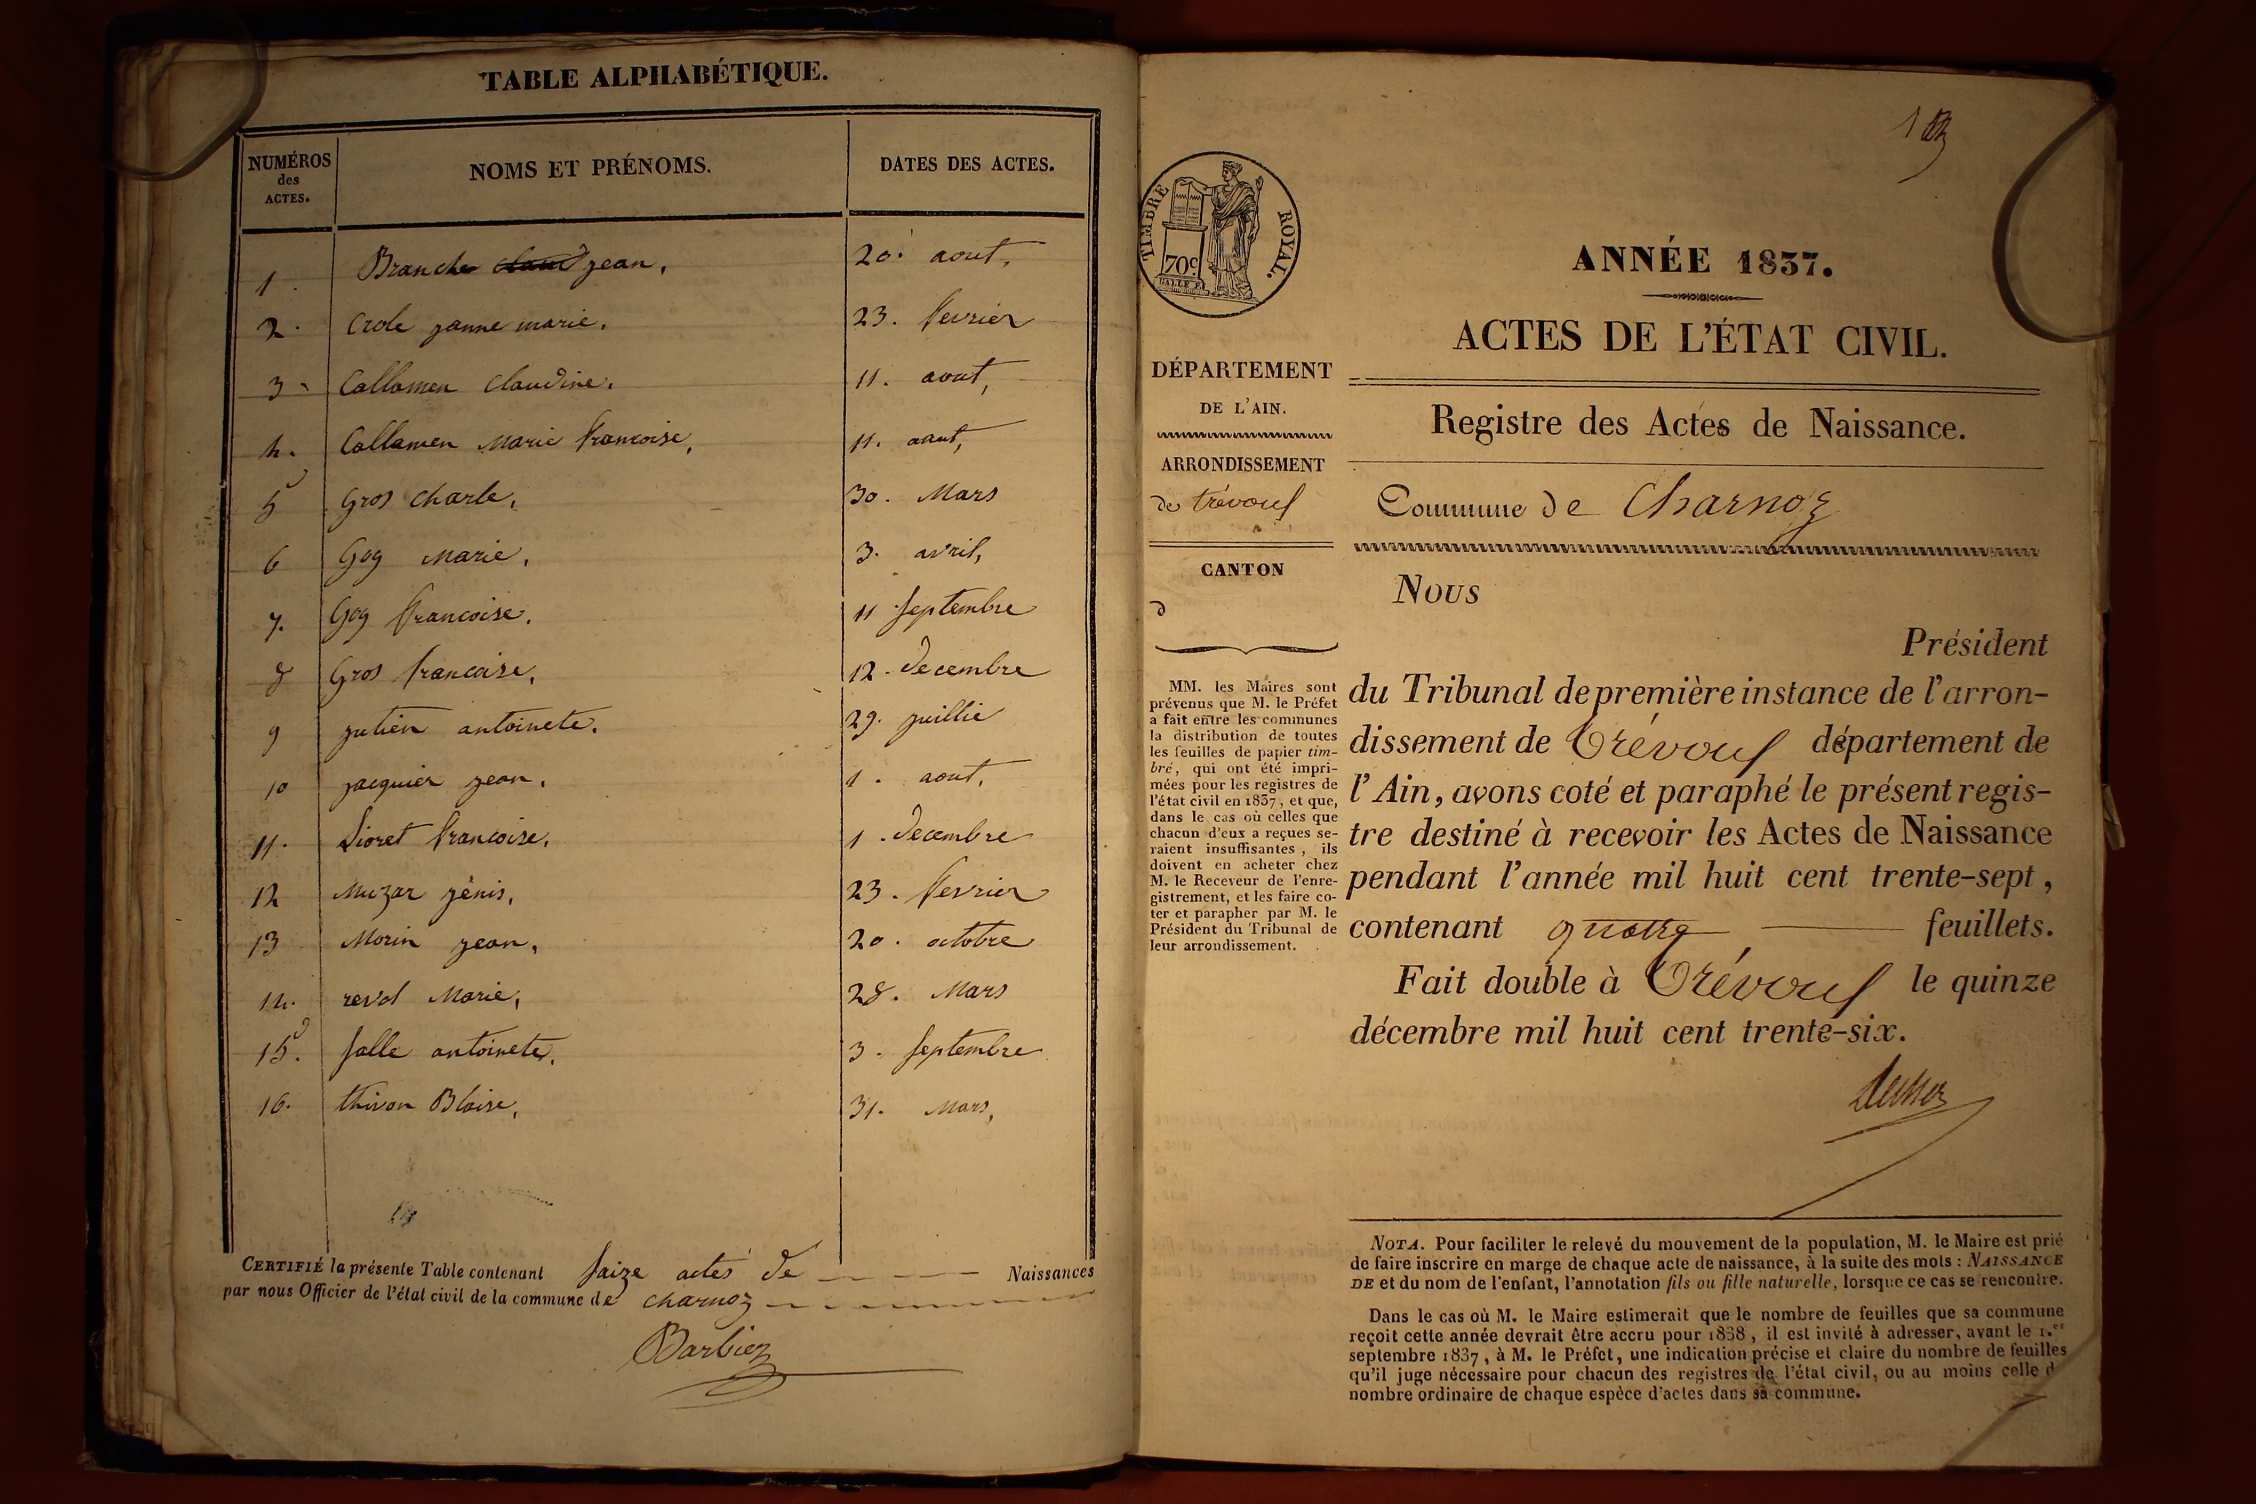 TABLE ALPHABÉTIQUE.
NUMÉROS
des
ACTES.
NOMS ET PRÉNOMS.
DATES DES ACTES.
1. Branche jean, 20. aout,
2. Crole janne marie. 23. fevrier
3 Collomen Claudine. 11. aout,
4. Collomen Marie francoise, 11. aout,
5 Gros Charle, 30. Mars
6 Goy Marie, 3. avril,
7. Goy francoise, 11 septembre
8 Gros francoise, 12. decembre
9 jutien antoinete. 29. juillie
10 jacquier jean, 1. aout,
11. Lioret francoise, 1. decembre
12 Muzar jénis, 23. fevrier
13 Morin jean, 20. octobre
14. revol Marie, 28. Mars
15. Salle antoinete, 3. septembre
16. thivon Blaise, 31. Mars,
CERTIFIÉ la présente Table contenant saize actes de Naissances
par nous Officier de l'état civil de la commune de charnoz
Barbier
TIMBRE ROYAL.
70c
ANNÉE 1837.
ACTES DE L'ÉTAT CIVIL.
Registre des Actes de Naissance.
Commune de Charnoz
DÉPARTEMENT
DE L'AIN.
ARRONDISSEMENT
de trévoux
CANTON
d
MM. les Maires sont
prévenus que M. le Préfet
a fait entre les communes
la distribution de toutes
les feuilles de papier tim-
bré, qui ont été impri-
mées pour les registres de
l'état civil en 1837, et que,
dans le cas où celles que
chacun d'eux a reçues se-
raient insuffisantes, ils
doivent en acheter chez
M. le Receveur de l'enre-
gistrement, et les faire co-
ter et parapher par M. le
Président du Tribunal de
leur arrondissement.
Nous
Président
du Tribunal de première instance de l'arron-
dissement de Trévoux département de
l'Ain, avons coté et paraphé le présent regis-
tre destiné à recevoir les Actes de Naissance
pendant l'année mil huit cent trente-sept,
contenant quatre feuillets.
Fait double à Trévoux le quinze
décembre mil huit cent trente-six.
NOTA. Pour faciliter le relevé du mouvement de la population, M. le Maire est prié
de faire inscrire en marge de chaque acte de naissance, à la suite des mots : NAISSANCE
DE et du nom de l'enfant, l'annotation fils ou fille naturelle, lorsque ce cas se rencontre.
Dans le cas où M. le Maire estimerait que le nombre de feuilles que sa commune
reçoit cette année devrait être accru pour 1838, il est invité à adresser, avant le 1.er
septembre 1837, à M. le Préfet, une indication précise et claire du nombre de feuilles
qu'il juge nécessaire pour chacun des registres de l'état civil, ou au moins celle d
nombre ordinaire de chaque espèce d'actes dans sa commune.